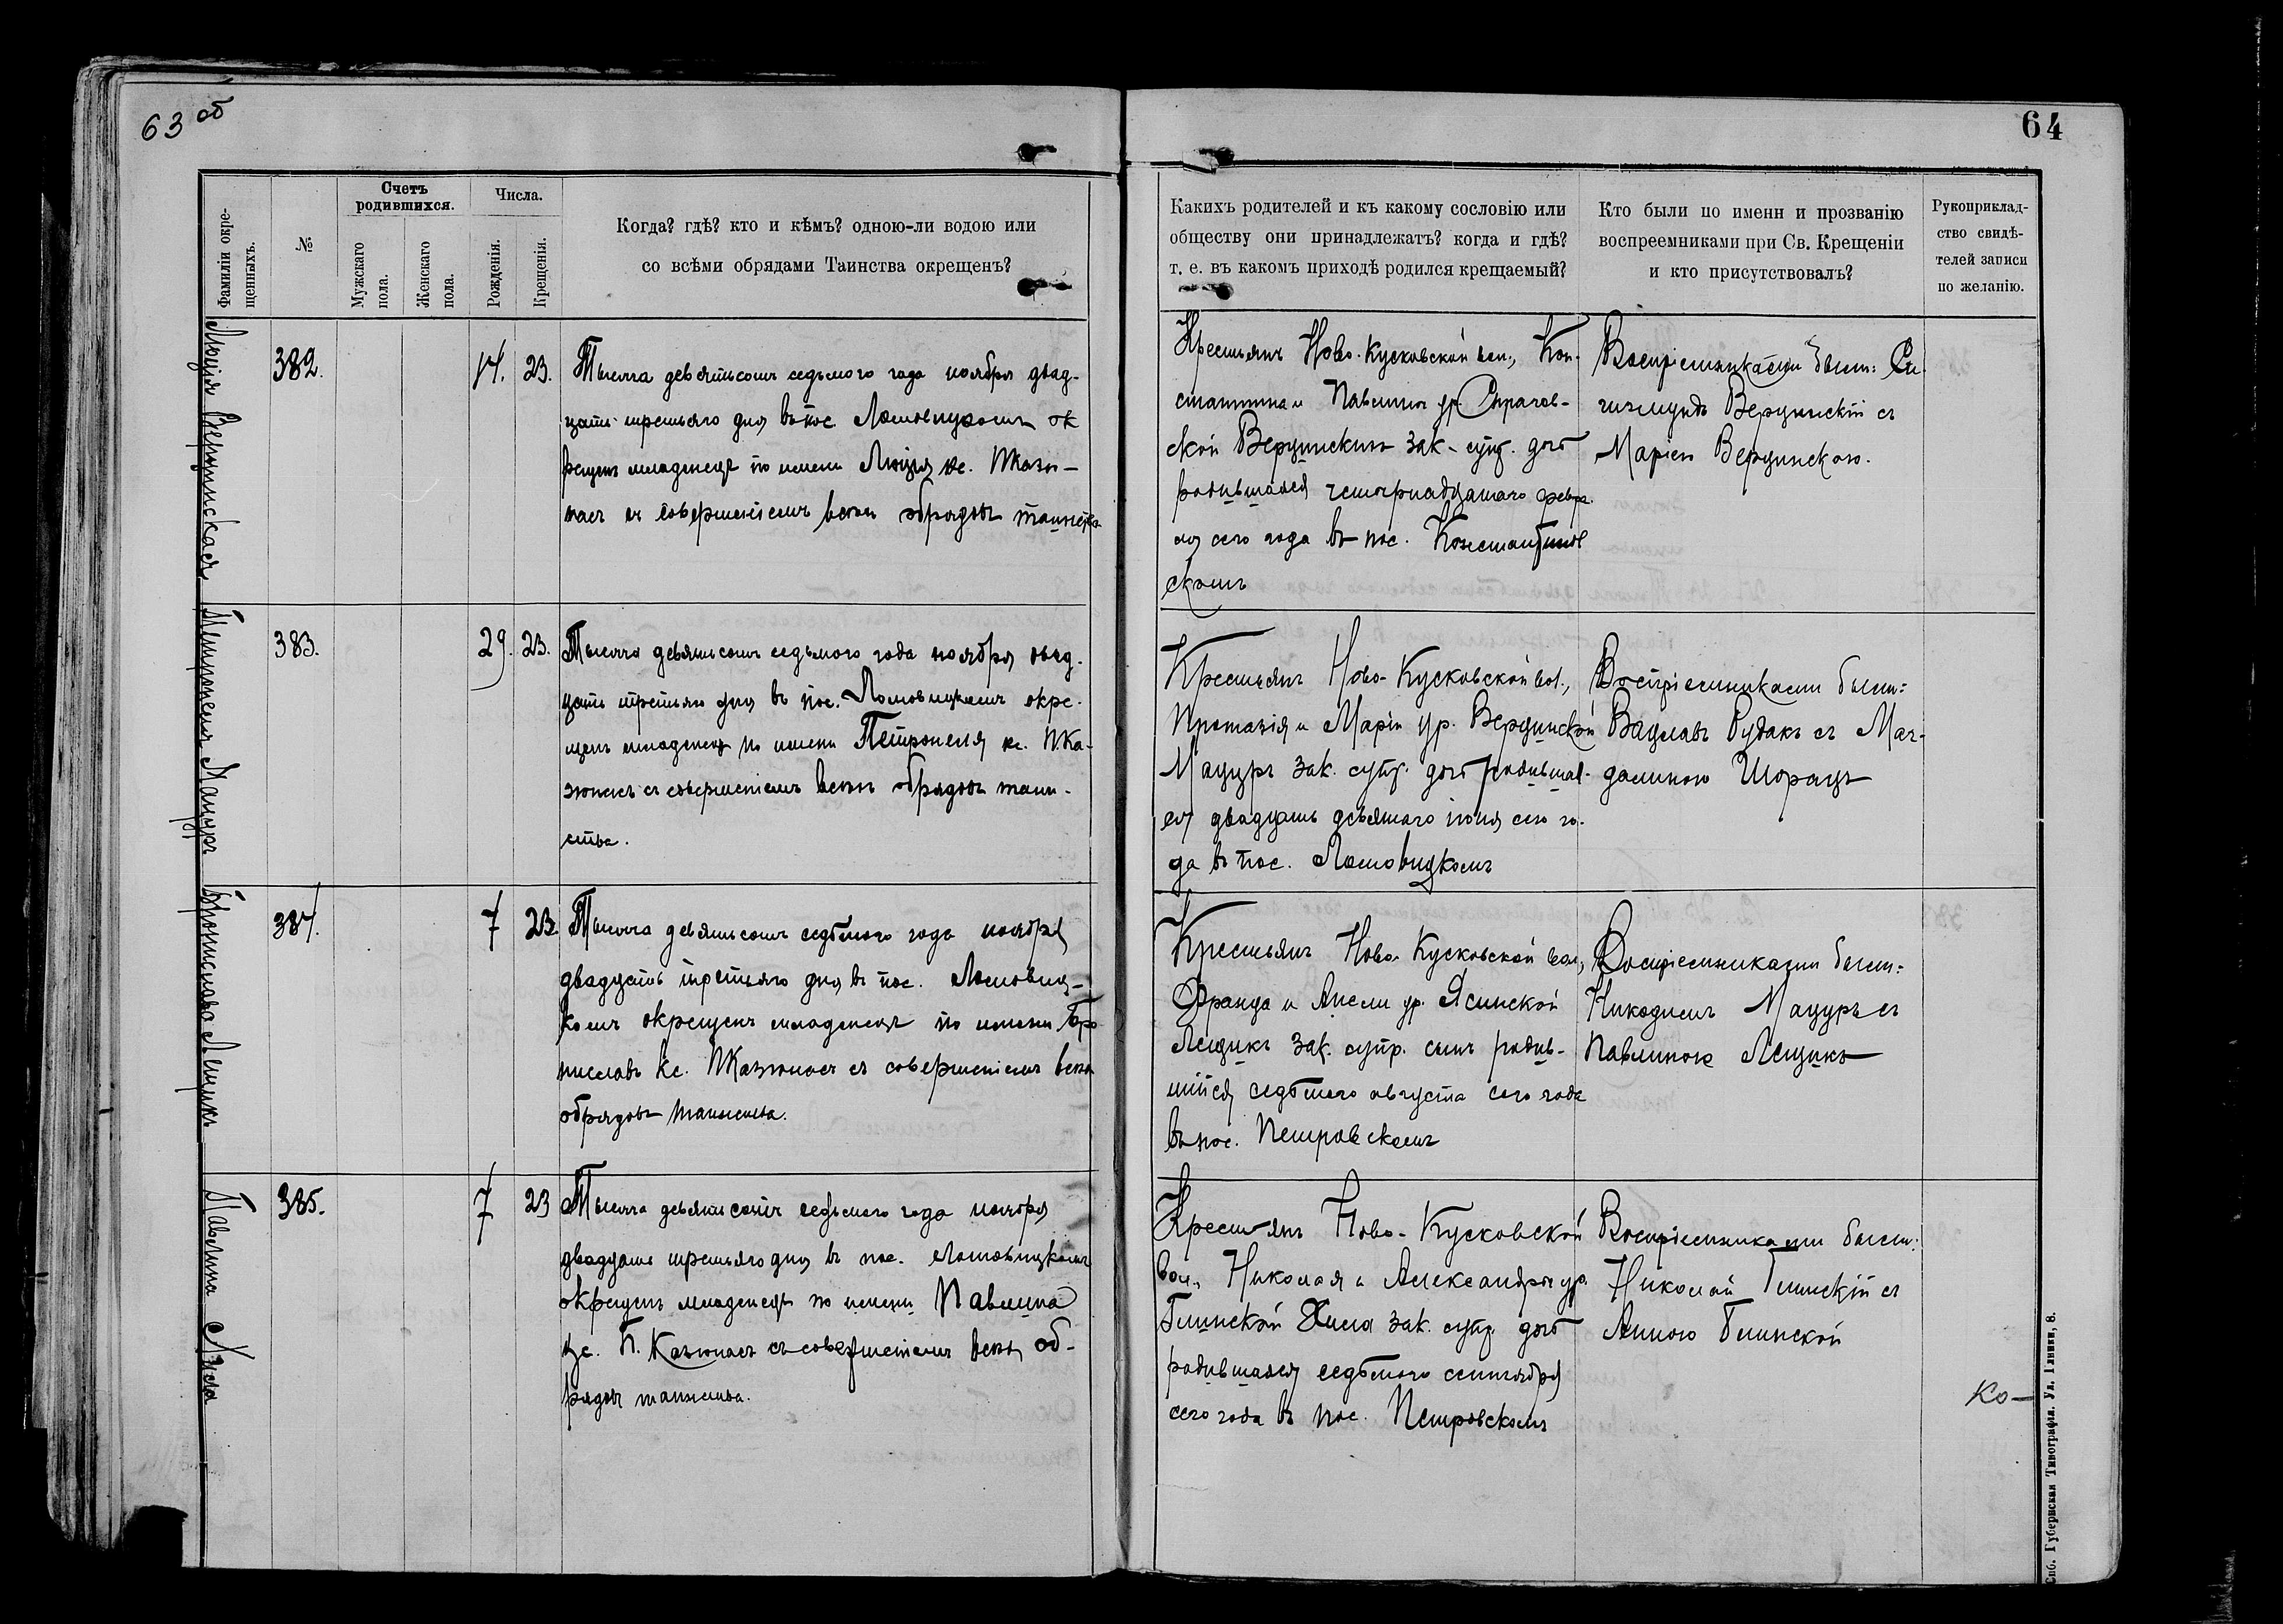 63 об
64
Фамиліи окре-
щенныхъ.
№
Счетъ
родившихся.
Мужскаго
пола.
Женскаго
пола.
Числа.
Рожденія.
Крещенія.
Когда? гдѣ? кто и кѣмъ? одною-ли водою или
со всѣми обрядами Таинства окрещенъ?
Какихъ родителей и къ какому сословію или
обществу они принадлежатъ? когда и гдѣ?
т. е. въ какомъ приходѣ родился крещаемый?
Кто были по имени и прозванію
воспреемниками при Св. Крещеніи
и кто присутствовалъ?
Рукоприклад-
ство свидѣ-
телей записи
по желанію.
Люція
382.
14.
23.
Тысяча девятьсотъ седьмого года ноября двад-
цать третьяго дня въ пос. Ломовицкомъ ок
рещенъ младенецъ по имени Люція кс.
съ совершеніемъ всѣхъ обрядовъ таинства
Крестьянъ Ново-Кусковской вол., Кон-
стантина и Павлины ур.
зак. супр. дочь
родившаяся четырнадцатаго февра
ля сего года въ пос. Константинов
скомъ
Воспріемниками были: Си
гизмундъ съ
Маріею
Петронеля Мацуръ
383.
29.
23.
Тысяча девятьсотъ седьмого года ноября двад-
цать третьяго дня въ пос. Ломовицкомъ окре-
щенъ младенецъ по имени Петронеля кс. П. Ка-
зюнасъ съ совершеніемъ всѣхъ обрядовъ таин-
ства.
Крестьянъ Ново-Кусковской вол.,
Протазія и Маріи ур.
Мацуръ зак. супр. дочь родившая-
ся двадцать девятаго іюня сего го-
да въ пос. Ломовицкомъ
Воспріемниками были:
Вацлавъ Рудакъ съ Маг-
далиною
Брониславъ Лещикъ
384.
7
23.
Тысяча девятьсотъ седьмого года ноября
двадцать третьяго дня въ пос. Ломовиц-
комъ окрещенъ младенецъ по имени Бро
ниславъ кс. П. Казюнасъ съ совершеніемъ всѣхъ
обрядовъ таинства.
Крестьянъ Ново-Кусковской вол.,
Франца и Анели ур. Ясинской
Лещикъ зак. супр. сынъ родив-
шійся седьмого августа сего года
въ пос. Петровскомъ
Воспріемниками были:
Никодимъ Мацуръ съ
Павлиною Лещикъ
Павлина
385.
7
23
Тысяча девятьсотъ седьмого года ноября
двадцать третьяго дня въ пос. Ломовицкомъ
окрещенъ младенецъ по имени Павлина
кс. П. Казюнасъ съ совершеніемъ всѣхъ об-
рядовъ таинства.
Крестьянъ Ново-Кусковской
вол., Николая и Александры ур.
зак. супр. дочь
родившаяся седьмого сентября
сего года въ пос. Петровскомъ
Воспріемниками были:
Николай съ
Анною
ко-
Спб. Губернская Типографія. Ул. Глинки, 8.